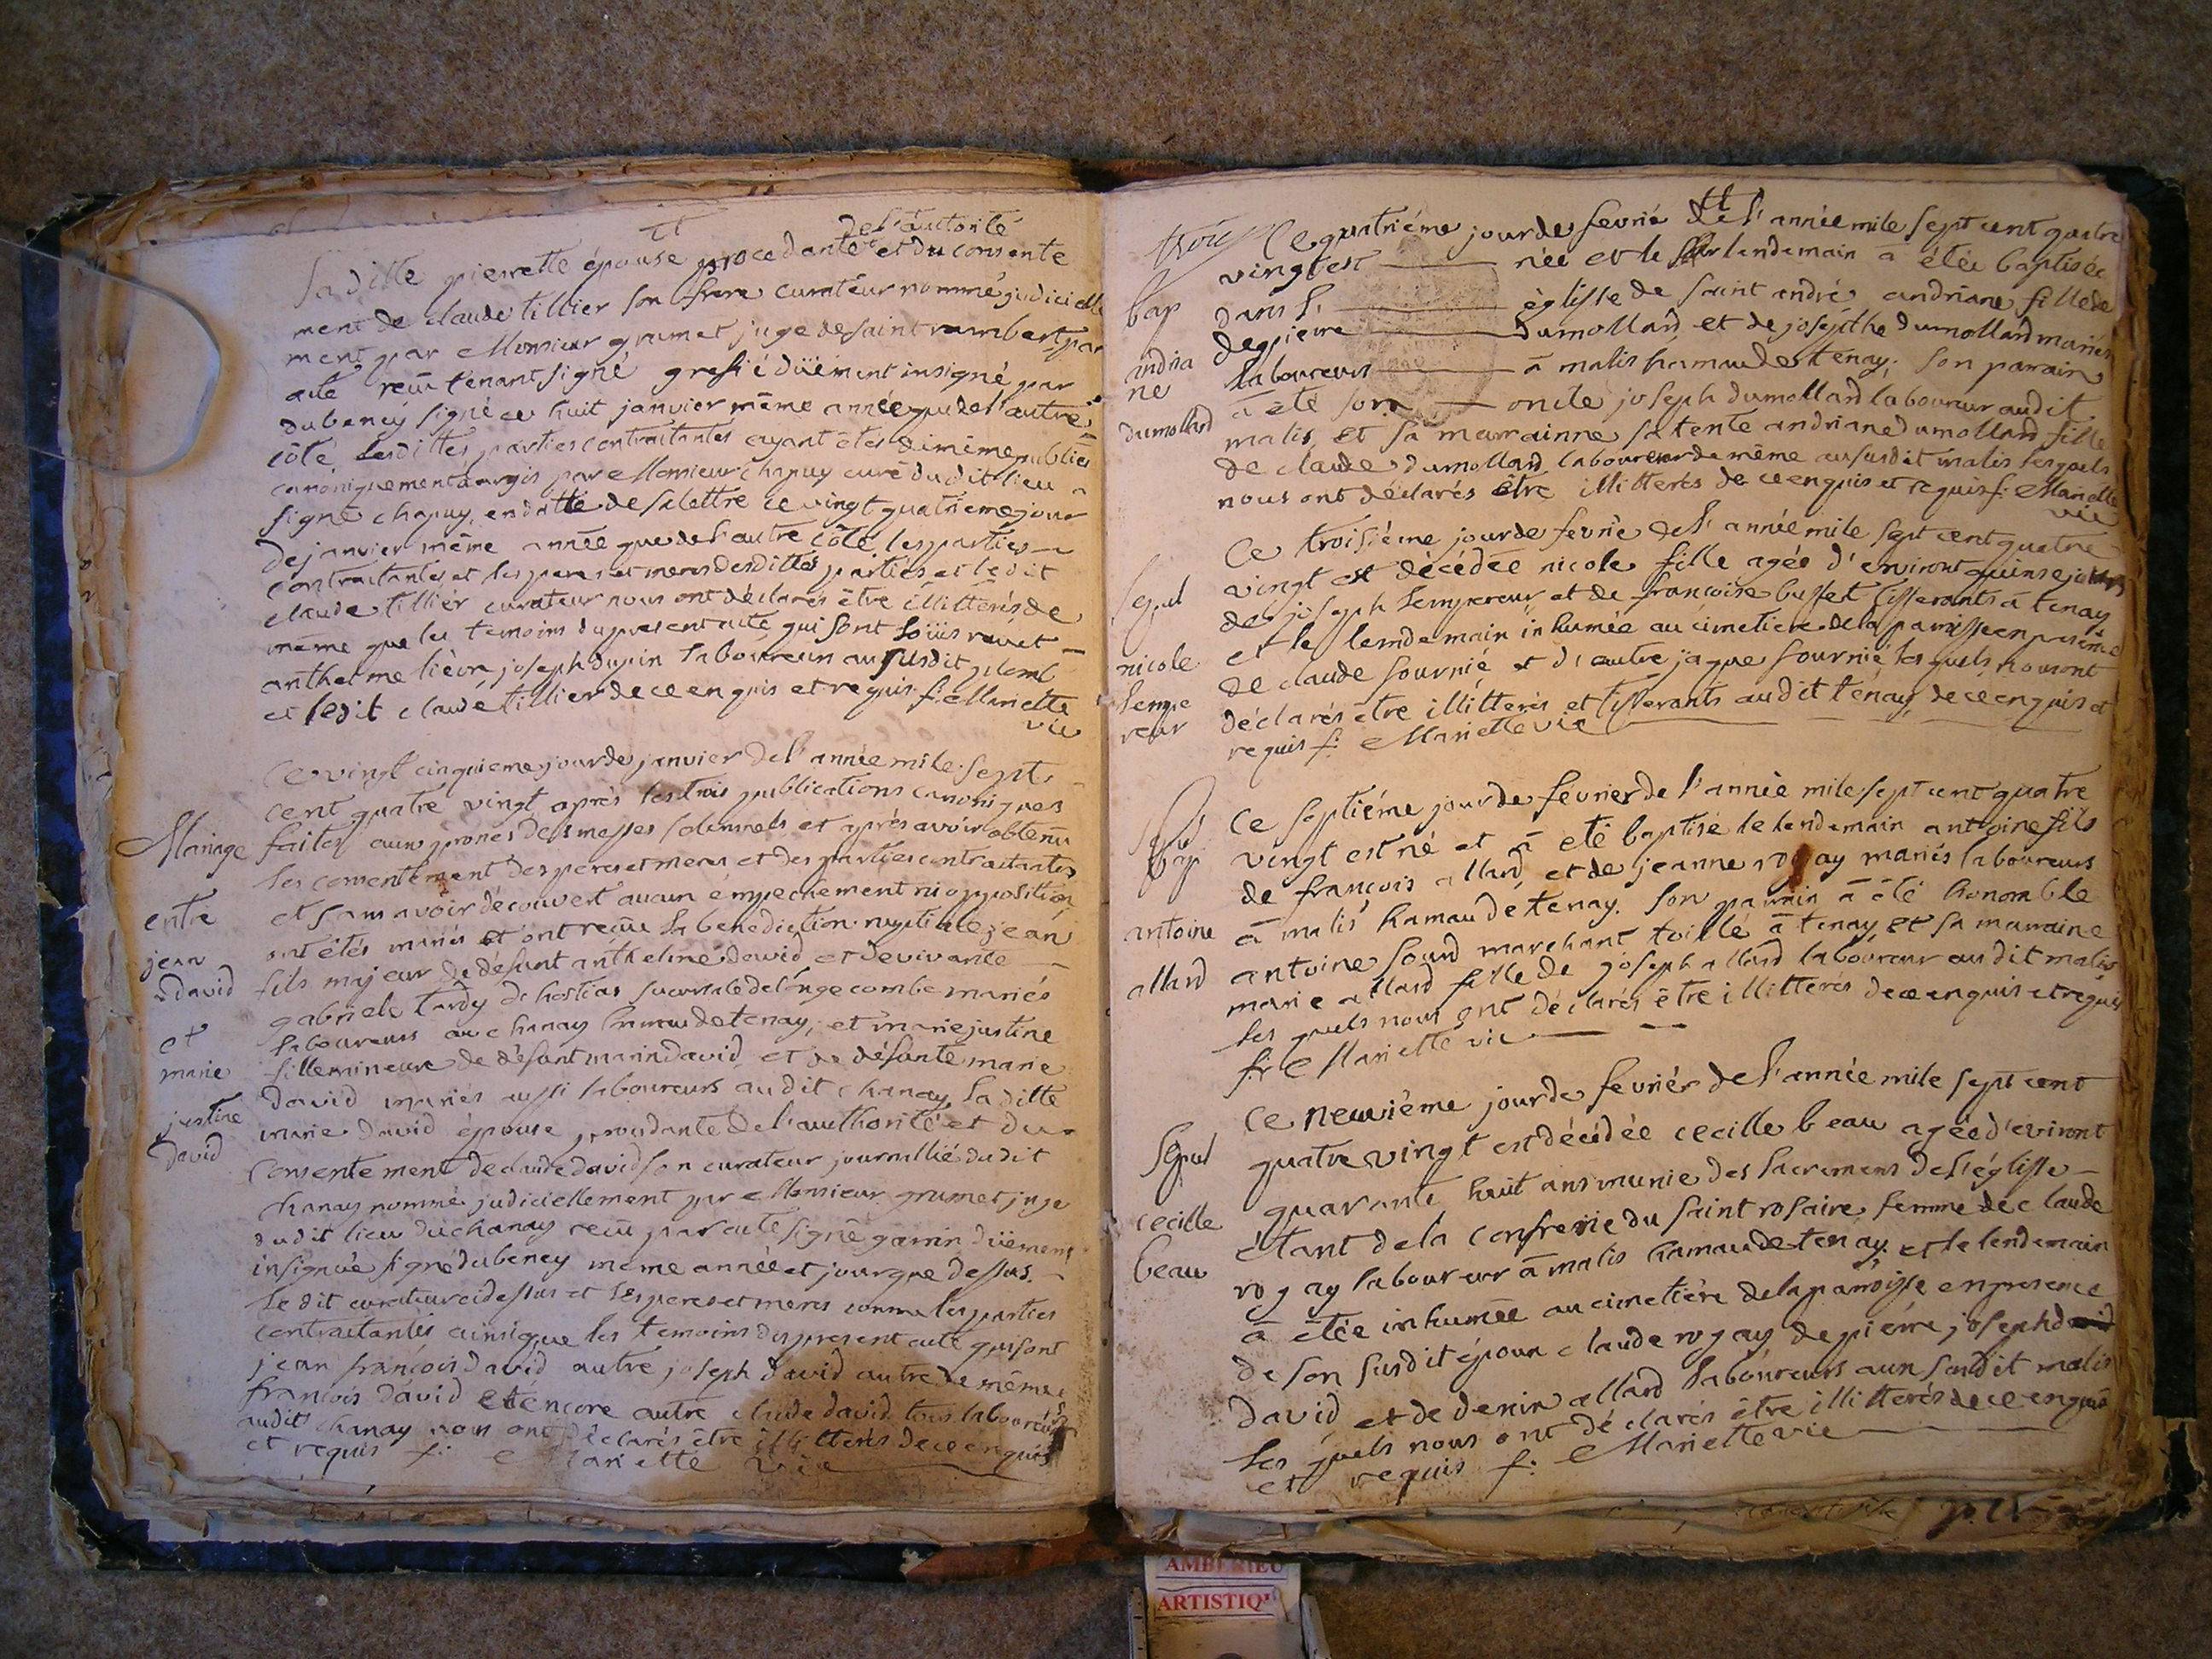 tt
de l'autorité
Ladite pierrette épouse procedante et du consente
ment de claude tillier son frere curateur nommé judicielle
ment par Monsieur grumet juge de saint rambert par
acte reçu tenant signé grefié düement insigné par
dubeney signé ce huit janvier même année que de l'autre
côté lesdittes parties contraitantes ayant êtes de même publiées
canoniquement par Monsieur chapuy curé du dit lieu
signé chapuy, en datte de sa lettre ce vingt quatrieme jour
de janvier même année que de l'autre côté, les parties
contraitantes et les peres et meres desdittes parties et ledit
claude tilliér curateur nous ont déclarés être illitterés de
même que les temoins du present acte qui sont
anthelme lièvre, joseph dupin laboureurs au susdit
et ledit claude tillier de ce enquis et requis f: Mariette
vic
Ce vingt cinquieme jour de janvier de l'année mile sept
cent quatre vingt après les trois publications canoniques
Mariage faites aux prones des messes solemnels et après avoir obtenu
les consentement des peres et meres et des parties contraitantes
entre et sans avoir découvert aucun empechement ni opposition
jean ont êtés mariés et ont reçue la benediction nuptiale jean
david fils majeur de défunt anthelme david et de vivante
gabriele tardy de hostias succursale de longecombe mariés
et laboureurs au chanay hamau de tenay, et marie justine
marie fille mineure de défunt marin david et de défunte marie
david mariés aussi laboureurs audit chanay, la ditte
justine marie david épouse procedante de l'authorité et du
david consentement de claude david son curateur journallié dudit
chanay nommé judiciellement par Monsieur grumet juge
dudit lieu du chanay reçu par acte signé garin düement
insignué signé dubeney même année et jour que dessus.
le dit curateur ci dessus et les peres et meres comme les parties
contraitantes ainsi que les temoins du present acte qui sont
jean françois david autre joseph david autre de même
francois david et encore autre claude david tous laboureurs
audit chanay nous ont déclarés être illitterés de ce enquis
et requis f: Mariette vic
trois
tt
Ce quatriéme jour de fevrié de l'année mile sept cent quatre
vingt est née et le lendemain à étée baptisée
bap dans l' églisse de saint andré andriane fille de
de pierre dumollard et de josephe dumollard mariés
andria laboureurs à malis hamau de tenay; son parain
ne à été son oncle joseph dumollard laboureur audit
dumollard malis, et sa marrainne sa tente andriane dumollard fille
de claude dumollard laboureur de même au susdit malis lesquels
nous ont déclarés être illitterés de ce enquis et requis f: Mariette
vic
Ce troisiéme jour de fevrié de l'année mile sept cent quatre
vingt est décédée nicole fille agée d'environt quinse jours
sepul de joseph lempereur et de françoise buffet tisserants à tenay
et le lemdemain inhumée au cimetiere de la paroisse en presence
nicole de claude fournié et d'autre jaque fournié lesquels nous ont
lempe déclarés être illitterés et tisserants audit ténay, de ce enquis et
reur requis f: Mariette vic
Ce septiéme jour de février de l'année mile sept cent quatre
bap vingt est né et à eté baptisé le lendemain antoine fils
de françois allard, et de jeanne rogay mariés laboureurs
à malis hamau de tenay. son parrain à été honorable
antoine antoine sourd marchant toillé à tenay et sa marraine
allard marie allard fille de joseph allard laboureur au dit malis
lesquels nous ont déclarés être illitterés de ce enquis et requis
f: Mariette vic
Ce neuvième jour de fevriér de l'année mile sept cent
sepul quatre vingt est décédée cecille beau agée d'environt
quarante huit ans munie des sacremens de l'églisse
cecille étant de la confrerie du saint rosaire femme de claude
beau rogay laboureur à malis hamau de tenay. et le lendemain
à étée inhumée au cimetière de la paroisse en presence
de son susdit époux claude rogay de pierre, joseph
david et de denis allard laboureurs aux susdit malis
lesquels nous ont déclarés être illitterés de ce enquis
et requis f: Mariette vic
AMBERIEU
ARTISTIQU